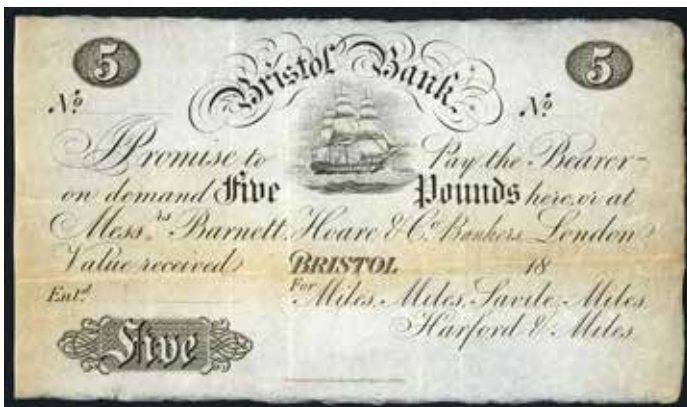 5 5
Bristol Bank
No No
I Promise to Pay the Bearer
on demand Five Pounds here, or at
Messrs Barnett, Hoare & Co. Bankers London
Value received BRISTOL 18
Entd For Miles, Miles, Savile, Miles,
Harford & Miles
Five